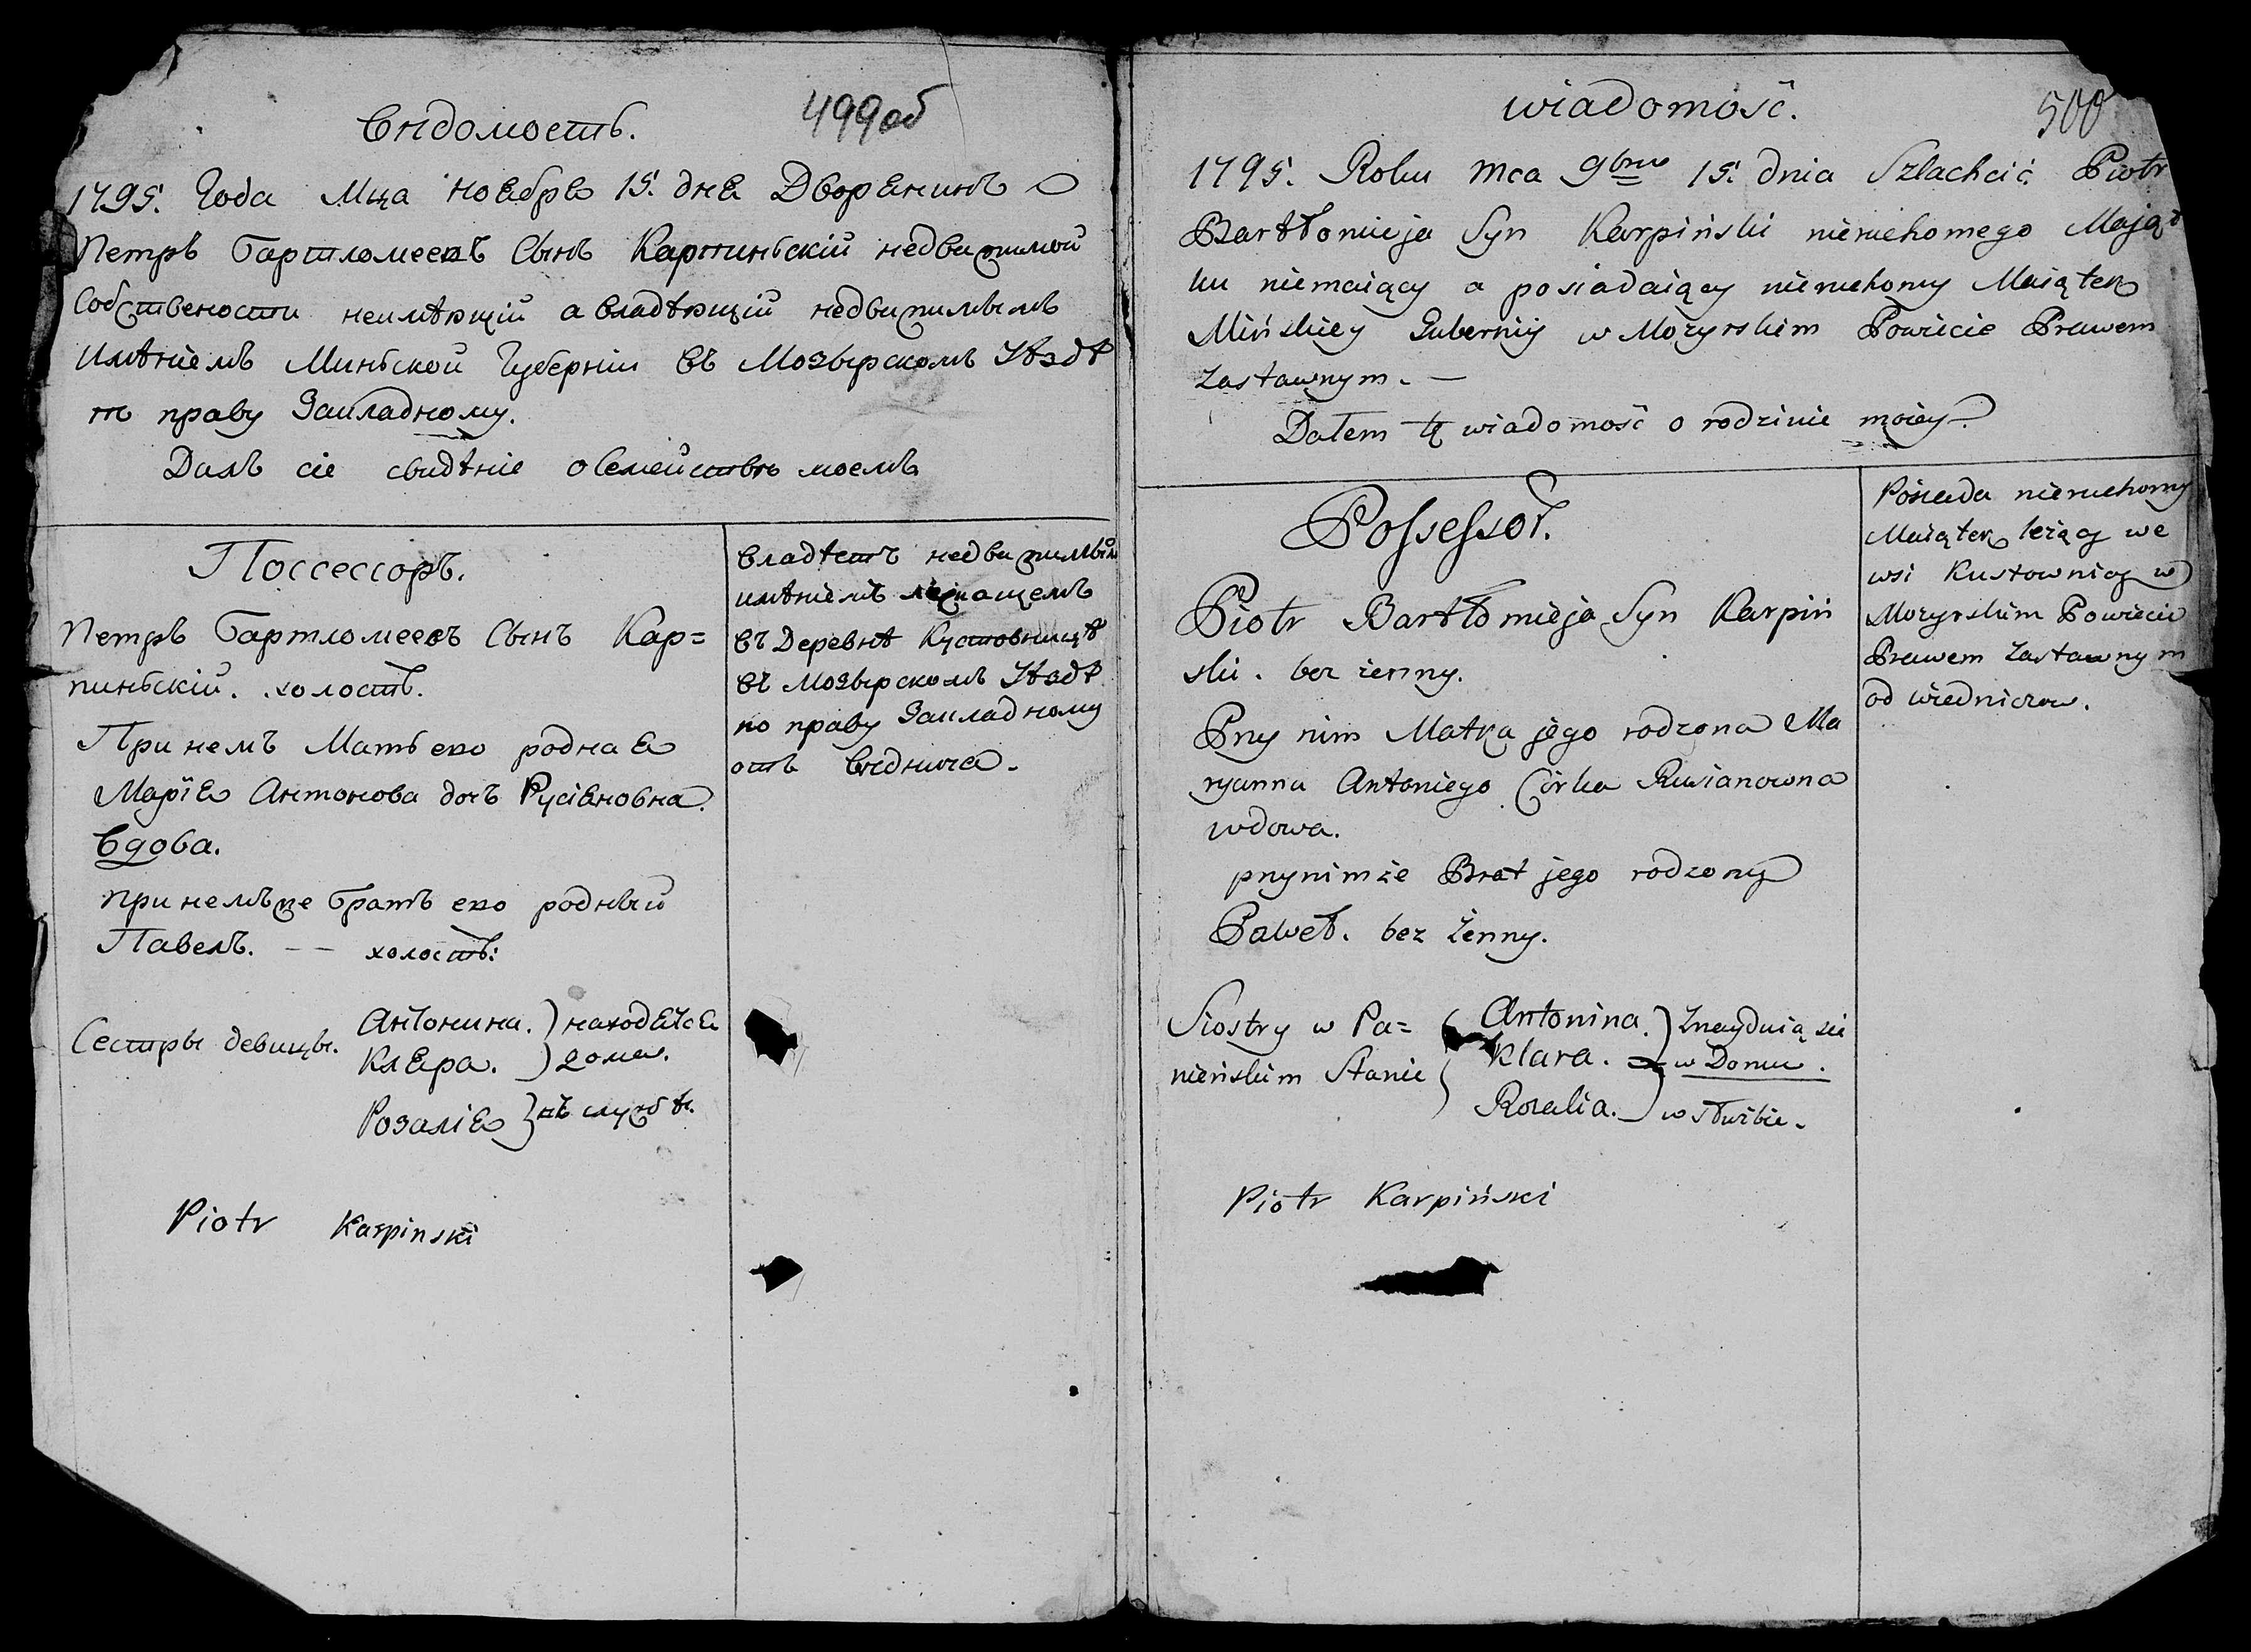 Вѣдомость.
499об
1795. Года Мца ноября 15. дня Дворянинъ
Петръ Бартломеевъ Сынъ Карпиньскій недвижимой
Собствености неимѣющій а владѣющій недвижимымъ
имѣніемъ Миньской Губерніи въ Мозырскомъ Уѣздѣ
по праву Закладному.
Далъ сіе свидѣніе о Семействѣ моемъ
Поссессоръ.
Петръ Бартломеевъ Сынъ Кар=
пиньскій. холостъ.
При немъ Мать его родная
Марія Антонова дочъ Русіяновна.
Вдова.
при немъ же Братъ его родный
Павелъ. — — холостъ:
Сестры девицы.
Антонина.
Кляра.
находятся
дома.
Розалія
въ службѣ.
Piotr Karpinski
владѣетъ недвижимымъ
имѣніемъ лежащемъ
въ Деревнѣ Кустовницѣ
въ Мозырскомъ Уѣздѣ
по праву Закладному
отъ Вѣднича.
wiadomość.
500
1795. Roku mca 9bra 15. dnia Szlachcić Piotr
Bartłomieja Syn Karpiński nieruchomego Mająt
ku niemaiący a posiadaiący nieruchomy Maiątek
Mińskiey Guberniy w Mozyrskim Powiecie Prawem
zastawnym. —
Dałem tę wiadomość o rodzinie moiey.
Possessor.
Piotr Bartłomieja Syn Karpiń
ski. bez żenny.
Przy nim Matka jego rodzona Ma
ryanna Antoniego Córka Rusianowna
wdowa.
przynimże Brat jego rodzony
Paweł. bez żenny.
Siostry w Pa=
nieńskim Stanie
Antonina.
Klara.
Rozalia.
Znayduią sie
w Domu.
w służbie.
Piotr Karpiński
Posiada nieruchomy
Maiątek leżący we
wsi Kustownicy w
Mozyrskim Powiecie
Prawem Zastawnym
od wiednicza.